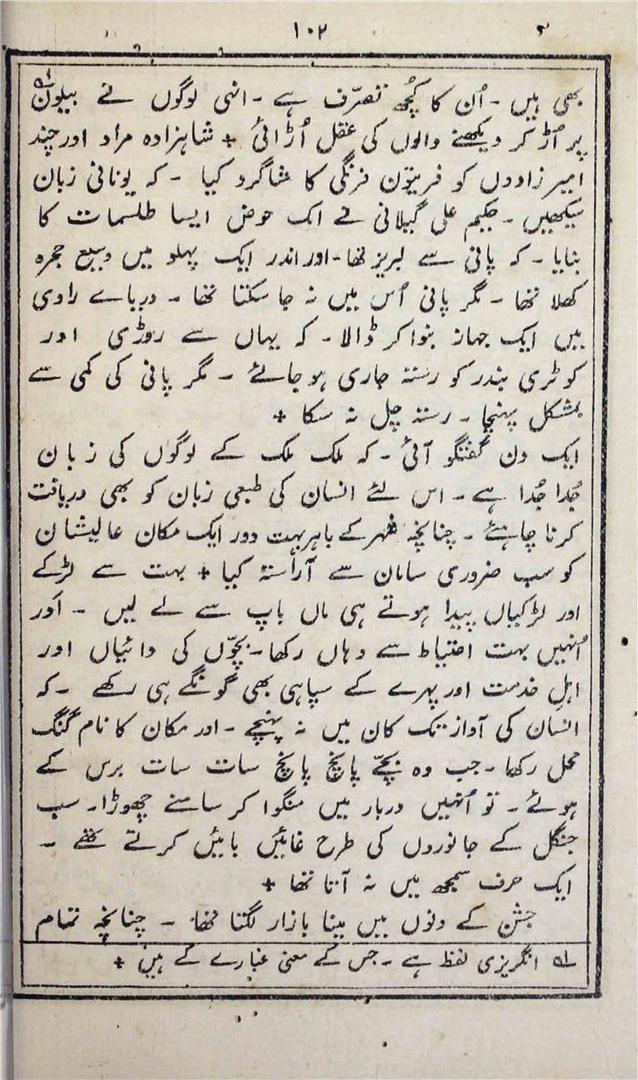 ۱۰۲
بھی ہیں - اُن کا کچُھ تصرّف ہے - انہی لوگوں نے بیلون؂۱
پر اُڑ کر دیکھنے والوں کی عقل اُڑائی + شاہزادہ مراد اور چند
امیر زادوں کو فریتوٗن فرنگی کا شاگرد کیا - کہ یونانی زبان
سیکھیں - حکیم علی گیلانی نے ایک حوض ایسا طلسمات کا
بنایا - کہ پانی سے لبریز تھا - اور اندر ایک پہلو میں وسیع حجرہ
کھلا تھا - مگر پانی اُس میں نہ جا سکتا تھا - دریاے راوی
میں ایک جہاز بنوا کر ڈالا - کہ یہاں سے روڑی اور
کوٹری بندر کو رستہ جاری ہو جائے - مگر پانی کی کمی سے
بمشکل پہنچا - رستہ چل نہ سکا +
ایک دن گفتگو آئی - کہ ملک ملک کے لوگوں کی زبان
جُدا جُدا ہے - اس لئے انسان کی طبعی زبان کو بھی دریافت
کرنا چاہئے - چنانچہ شہر کے باہر بہت دور ایک مکان عالیشان
کو سب ضروری سامان سے آراستہ کیا + بہت سے لڑکے
اور لڑکیاں پیدا ہوتے ہی ماں باپ سے لے لیں - اَور
اُنہیں بہت احتیاط سے وہاں رکھا - بچّوں کی دائیاں اور
اہلِ خدمت اور پہرے کے سپاہی بھی گونگے ہی رکھے - کہ
انسان کی آواز تک کان میں نہ پہنچے - اور مکان کا نام گنگ
محل رکھا - جب وہ بچّے پانچ پانچ سات سات برس کے
ہوئے - تو اُنہیں دربار میں منگوا کر سامنے چھوڑا - سب
جنگل کے جانوروں کی طرح غائیں بائیں کرتے تھے -
ایک حرف سمجھ میں نہ آتا تھا +
جشن کے دنوں میں مینا بازار لگتا تھا - چنانچہ تمام
؂۱ انگریزی لفظ ہے - جس کے معنی غبارے کے ہیں +